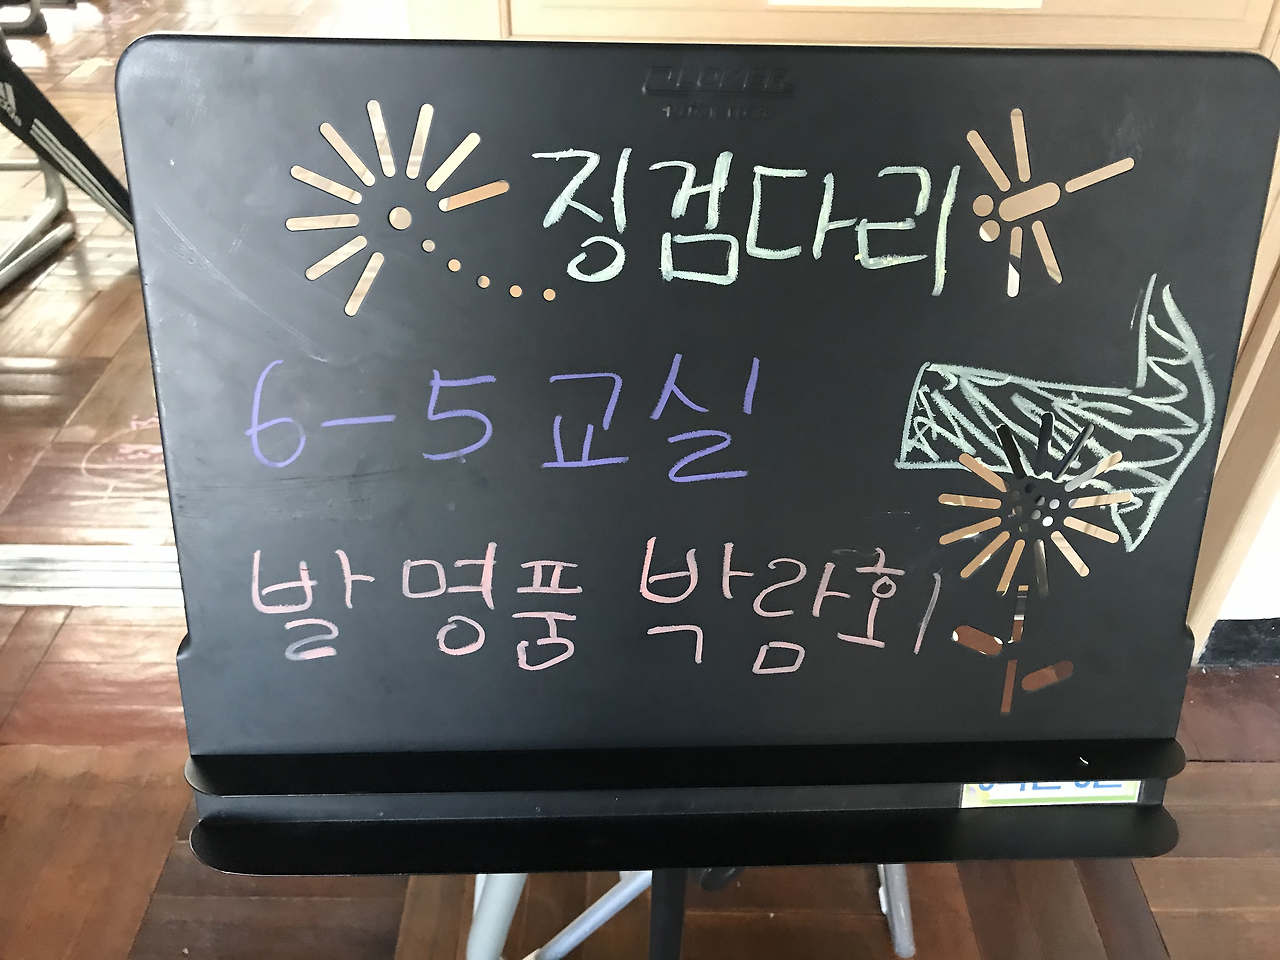 징검다리
6-5 교실
발명품 박람회